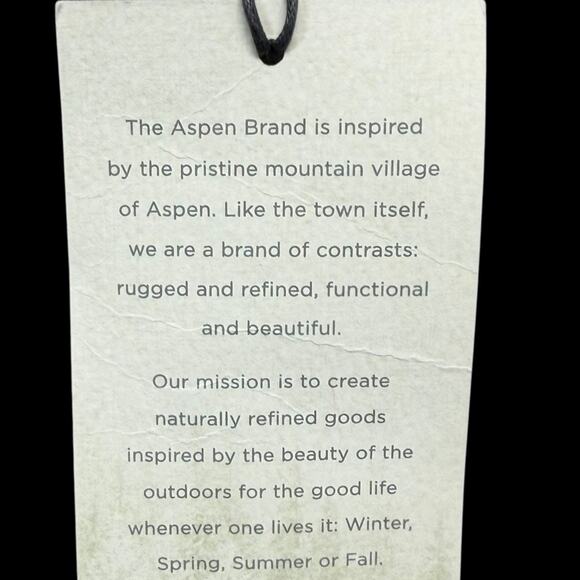 The Aspen Brand is inspired
by the pristine mountain village
of Aspen. Like the town itself,
we are a brand of contrasts:
rugged and refined, functional
and beautiful.
Our mission is to create
naturally refined goods
inspired by the beauty of the
outdoors for the good life
whenever one lives it: Winter,
Spring, Summer or Fall.